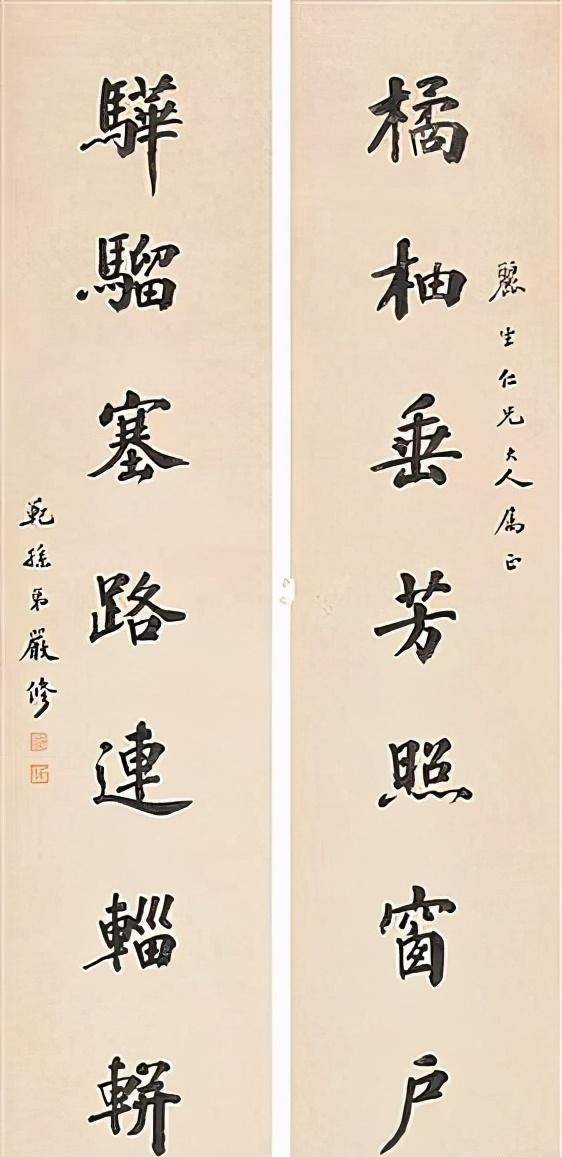 麗生仁兄大人属正
橘柚垂芳照窗户
驊騮塞路連輜軿
範孫弟嚴修